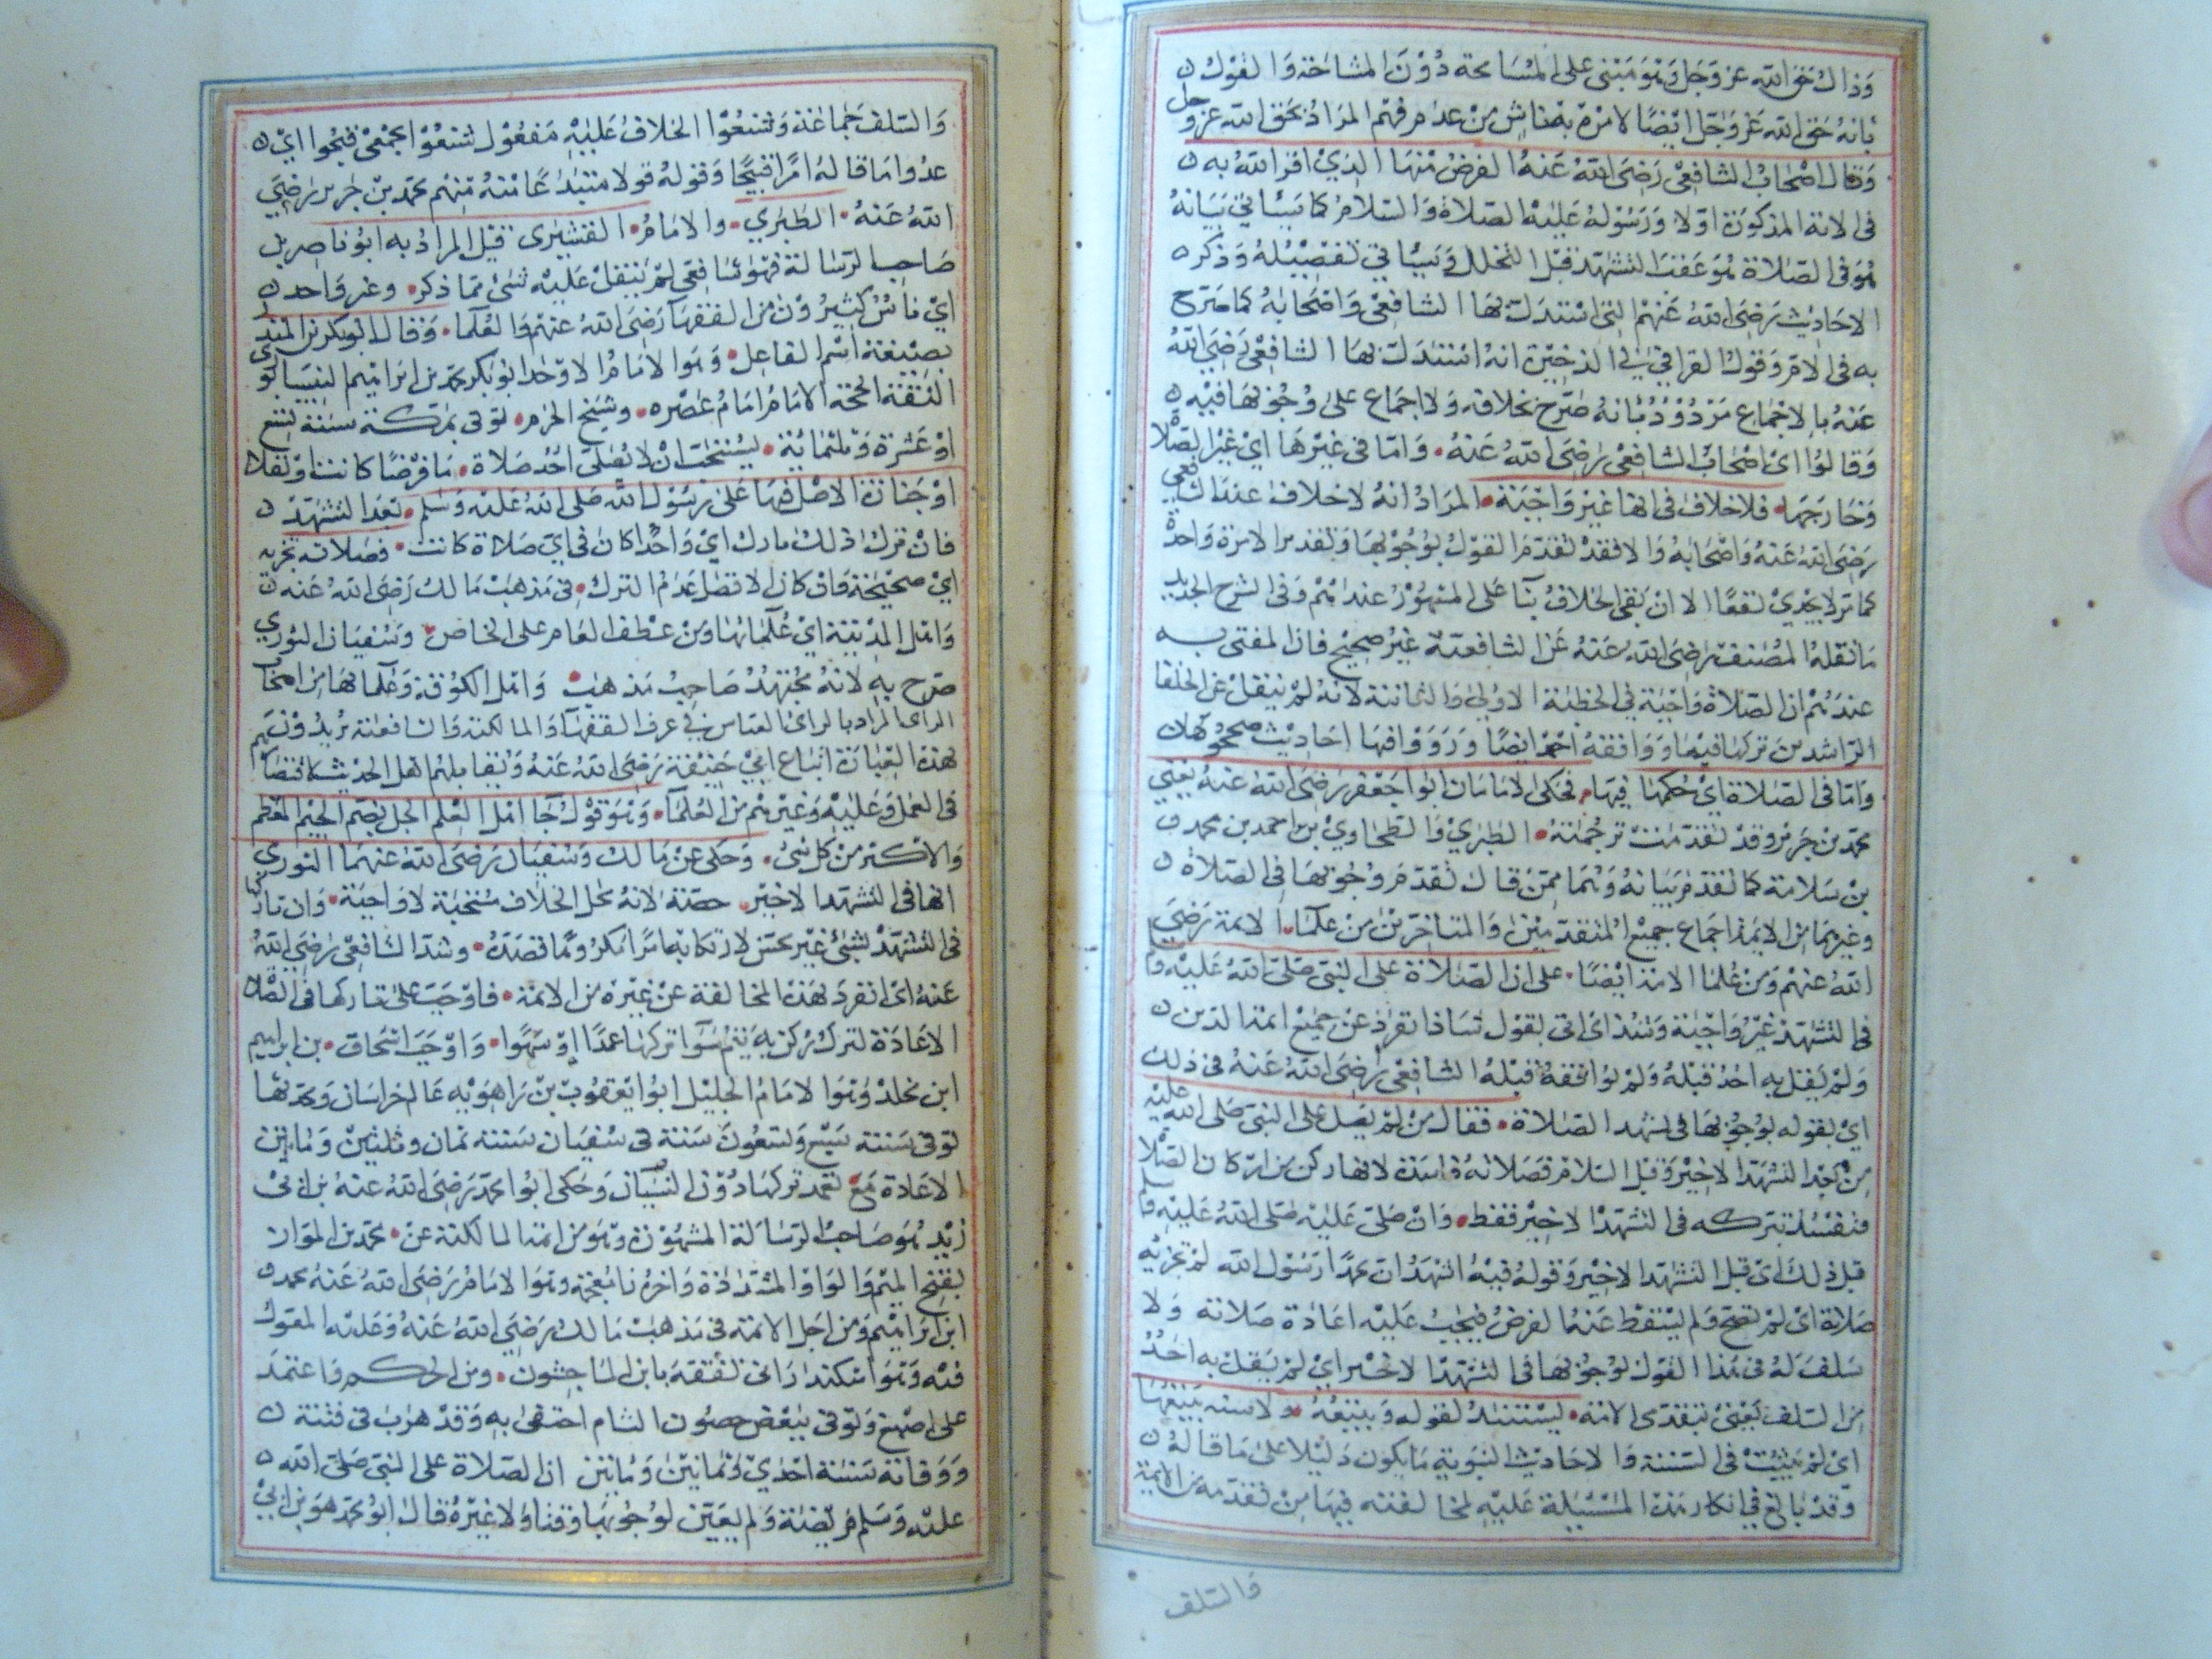 وذاك حق الله عز وجل وهو مبنى على المسامحة دون المشاحة والقول
بانه حق الله عز وجل ايضا لامره به ناش من عدم فهم المراد بحق الله عز وجل
وقال اصحاب الشافعى رضى الله عنه الفرض منها الذي امر الله به
فى الاية المذكورة اولا ورسوله عليه الصلاة والسلام كما سياتي بيانه
هو فى الصلاة هو عقب التشهد قبل التحلل وسياتي تفصيله وذكر
الاحاديث رضى الله عنهم التى استدل بها الشافعى واصحابه كما صرح
به فى الام وقول القرافي في الذخيرة انه استدل بها الشافعى رضى الله
عنه بالاجماع مردود بانه صرح بخلافه ولا اجماع على وجوبها فيه
وقالوا اى اصحاب الشافعى رضى الله عنه واما فى غيرها اي غير الصلاة
وخارجها فلا خلاف فى انها غير واجبة المراد انه لا خلاف عند الشافعي
رضى الله عنه واصحابه والا فقد تقدم القول بوجوبها وتقديرا لامرة واحدة
كما مر لا يجدي نفعا الا ان نفى الخلاف بنا على المشهور عندهم وفى الشرح الجديد
ما نقله المصنف رضى الله عنه عن الشافعية غير صحيح فان المفتى به
عندهم ان الصلاة واجبة في الخطبة الاولى والثانية لانه لم ينقل عن الخلفا
الراشدين تركها فيهما ووافقه احمد ايضا ورووا فيها احاديث صححوها
واما فى الصلاة اي حكمها فيها فحكى الامامان ابو جعفر رضى الله عنه يعني
محمد بن جرير وقد تقدمت ترجمته الطبري والطحاوي بن احمد بن محمد
بن سلامة كما تقدم بيانه وهما ممن قال تقدم وجوبها فى الصلاة
وغيرهما من الايمة اجماع جميع المتقدمين والمتاخرين من علما الامة رضى
الله عنهم ومن علما الامة ايضا على ان الصلاة على النبى صلى الله عليه وسلم
فى التشهد غير واجبة وشذ اى اتى بقول شاذ انفرد عن جميع ايمة الدين
ولم يقل به احد قبله ولم يوافقه قبله الشافعى رضى الله عنه فى ذلك
اي بقوله بوجوبها فى تشهد الصلاة فقال من لم يصل على النبى صلى الله عليه
من بعد التشهد الاخير وقبل السلام فصلاته فاسدة لانها ركن من اركان الصلاة
فتفسد بتركه فى التشهد الاخير فقط وان صلى عليه صلى الله عليه وسلم
قبل ذلك اى قبل التشهد الاخير وقوله فيه اشهد ان محمدا رسول الله لم تجزيه
صلاته اى لم تصح ولم يسقط عنه الفرض فيجب عليه اعادة صلاته ولا
سلف له فى هذا القول بوجوبها فى التشهد الاخير اي لم يقل به احد
من السلف يعنى متقدمى الامة ليستند لقوله ويتبعه ولا سنة يتبعها
اى لم يثبت فى السنة والاحاديث النبوية ما يكون دليلا على ما قاله
وقد بالغ في انكار هذه المسئلة عليه لمخالفته فيها من تقدمه من الايمة
والسلف
والسلف جماعة وشنعوا الخلاف عليه مفعول شنعوا بمعنى قبحوا اي
عدوا ما قاله امرا قبيحا وقوله قولا مبتدا عامته منهم محمد بن جرير رضى
الله عنه الطبري والامام القشيرى قيل المراد به ابو ناصر بل
صاحب الرسالة فهو شافعى لم ينقل عليه شئ مما ذكر وغير واحد
اي ناس كثيرون من الفقها رضى الله عنهم والعلما وقال ابو بكر بن المنذر
بصيغة اسم الفاعل وهو الامام الاوحد ابو بكر محمد بن ابراهيم النيسابوري
الثقة الحجة الامام امام عصره وشيخ الحرم توفى بمكة سنة تسع
او عشرة وثلثمائة يستحب ان لا يصلى احد صلاة ما فرضا كانت او نفلا
او جنازة الاصل فيها على رسول الله صلى الله عليه وسلم بعد التشهد
فان ترك ذلك تارك اي واحد كان فى اي صلاة كانت فصلاته مجزيه
اي صحيحة وان كان الافضل عدم الترك فى مذهب مالك رضى الله عنه
واهل المدينة اي علمائها ومن عطف العام على الخاص وسفيان الثوري
صرح به لانه مجتهد صاحب مذهب واهل الكوفة وعلمائها من اصحاب
الراى المراد بالراى القياس في عرف الفقها والمالكية والشافعية يريدون
بهذه العبارة اتباع ابي حنيفة رضى الله عنه ويقابلهم اهل الحديث
فى العمل وعليه وغيرهم من العلما وهو قول جا اهل العلم الجل بضم الجيم المعظم
والاكثر من كل شئ وحكى عن مالك وسفيان رضى الله عنهما الثوري
انها فى التشهد الاخير خصه لانه محل الخلاف مستحبة لا واجبة وان تاركها
فى التشهد مسئ غير محسن لارتكابه امرا مكروها قصده وشذ الشافعى رضى الله
عنه اى انفرد بهذه المخالفة عن غيره من الامة فاوجب على تاركها فى الصلاة
الاعادة لترك ركن به يتم سوا تركها عمدا او سهوا واوجب اسحاق بن ابراهيم
ابن مخلد وهو الامام الجليل ابو ايعقوب بن راهويه عالم خراسان ومحدثها
توفى سنة سبع وسبعون سنة فى شعبان سنة ثمان وثلثين ومايتين
الاعادة مع تعمد تركها دون النسيان وحكى ابو محمد رضى الله عنه بن ابى
زيد هو صاحب الرسالة المشهورة وهو من ايمة المالكية عن محمد بن المواز
بفتح الميم والواو المشددة واخره زا معجمة وهو الامام رضى الله عنه محمد
ابن ابراهيم ومن اجل الايمة فى مذهب مالك رضى الله عنه وعليه المعول
فيه وهو اسكندرانى تفقه بابن الماجشون وبن الحكم واعتمد
على اصبغ وتوفى ببعض حصون الشام اختفى به وقد هرب فى فتنة
ووفاته سنة احدي وثمانين ومايتين ان الصلاة على النبى صلى الله
عليه وسلم فريضة ولم يعين لوجوبها وقتا ولا غيره قال ابو محمد هو بن ابي